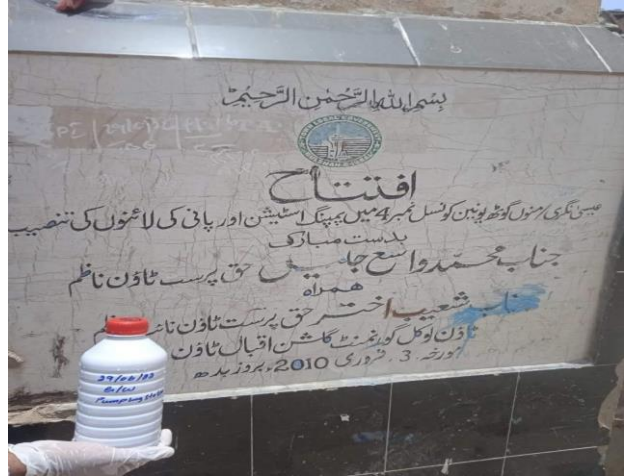 بسم اللہ الرحمن الرحیم
افتتاح
عیسیٰ نگری/منوں گوٹھ یونین کونسل نمبر 4 میں پمپنگ اسٹیشن اور پانی کی لائنوں کی تنصیب
بدست مبارک
جناب محمد واسع جلیس حق پرست ٹاؤن ناظم
ہمراہ
جناب شعیب اختر حق پرست ٹاؤن نائب ناظم
ٹاؤن لوکل گورنمنٹ گلشن اقبال ٹاؤن
مورخہ 3 فروری 2010ء بروز بدھ
B/W
Pumping